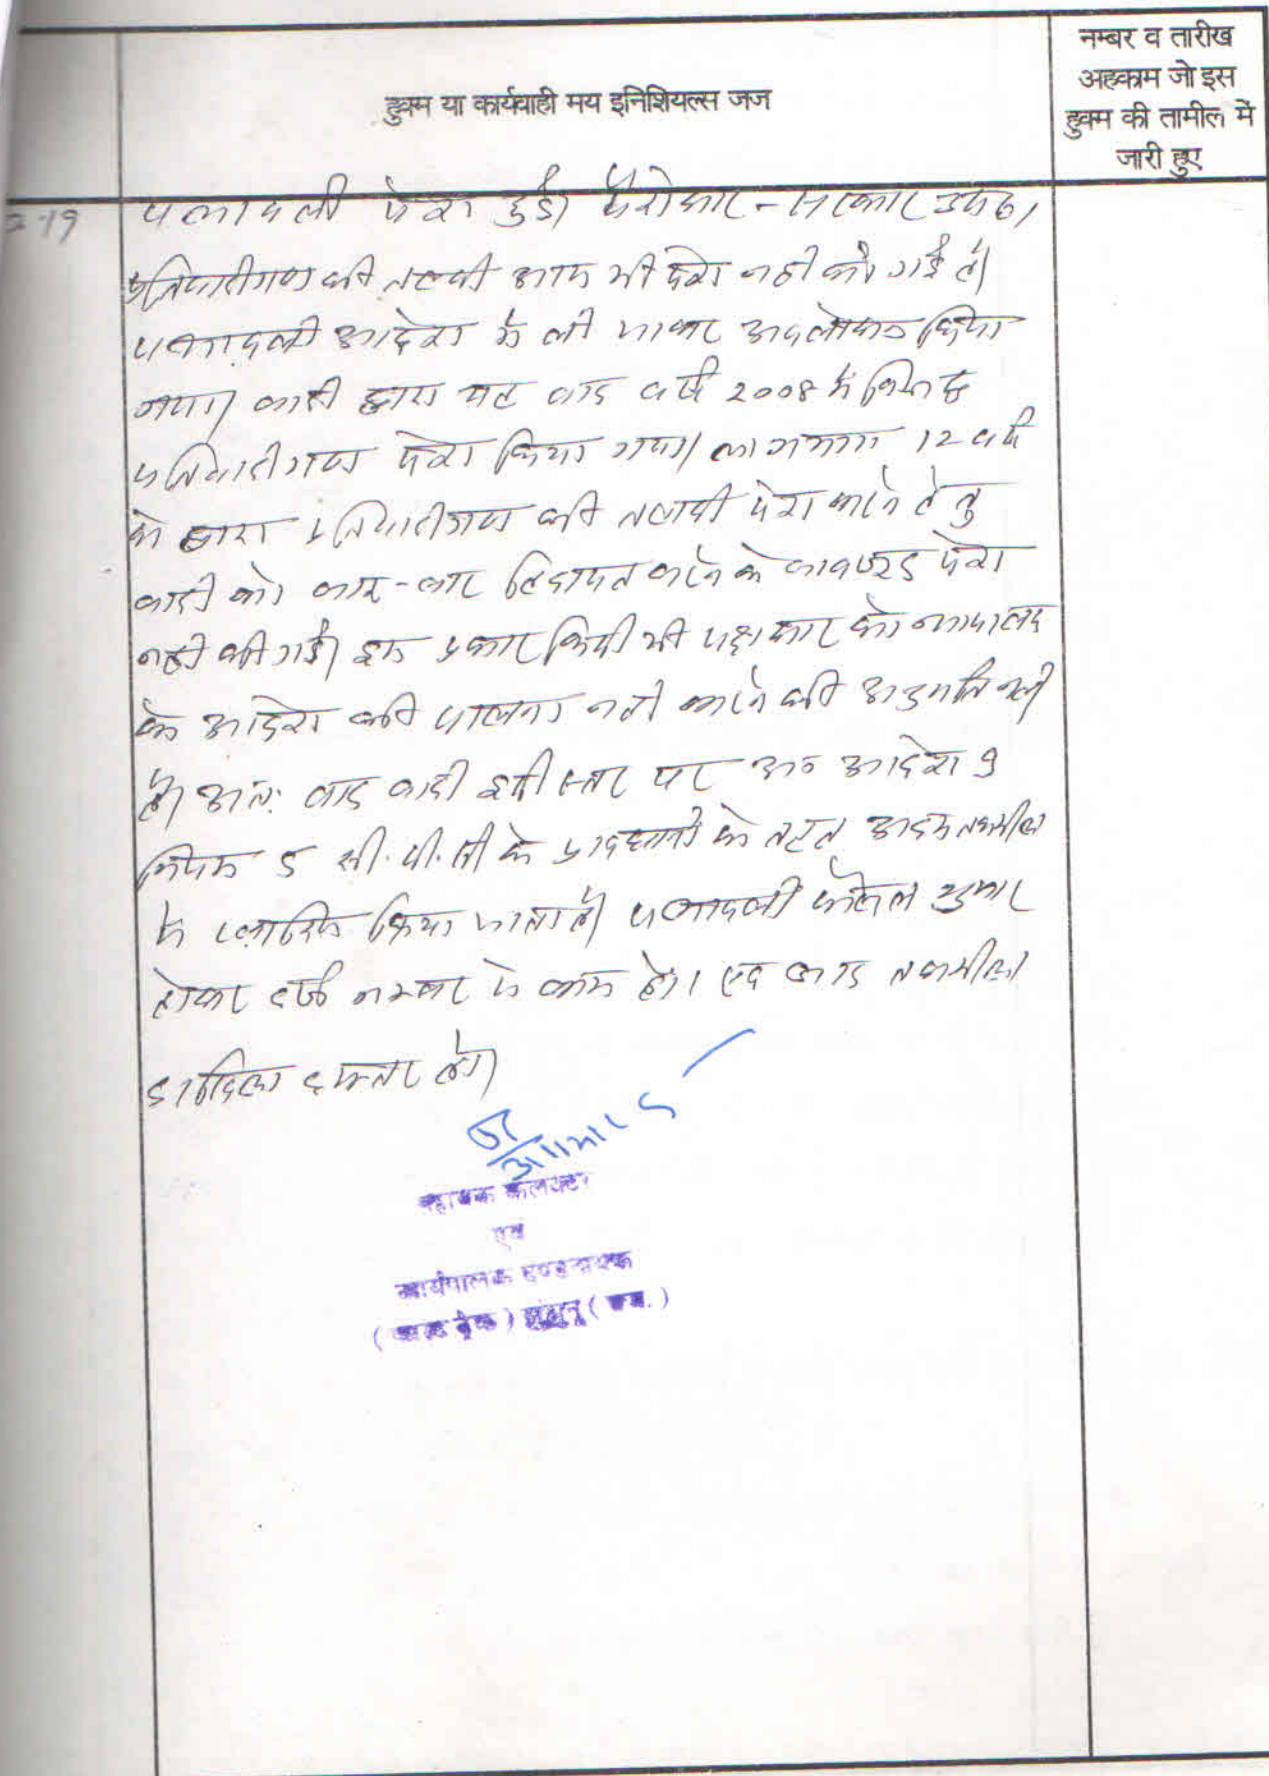 हुक्म या कार्यवाही मय इनिशियल्स जज
नम्बर व तारीख
अहकाम जो इस
हुक्म की तामील में
जारी हुए
2-19
पत्रावली पेश हुई। पैरोकार - सरकार उप०।
प्रतिवादीगण की तलबी आज भी पेश नहीं की गई है।
पत्रावली आदेश में ली जाकर अवलोकन किया
गया। वादी द्वारा यह वाद वर्ष 2008 में विरुद्ध
प्रतिवादीगण पेश किया गया। लगभग 12 वर्ष
के द्वारा प्रतिवादीगण की तलबी पेश करने हेतु
वादी को बार-बार हिदायत करने के बावजूद पेश
नहीं की गई। इस प्रकार किसी भी पक्षकार को न्यायालय
के आदेश की पालना नहीं करने की अनुमति नहीं
है। अतः वाद वादी इसी स्तर पर आदेश 9
नियम 5 सी.पी.सी के प्रावधानों के तहत अदम तकमील
में खारिज किया जाता है। पत्रावली फैसल शुमार
होकर दर्ज नम्बर से कम हो। एवं बाद तकमील
दाखिल दफ्तर हो।
सहायक कलक्टर
एवं
कार्यपालक दण्डनायक
(फास्ट ट्रेक) झुंझुनू (राज.)